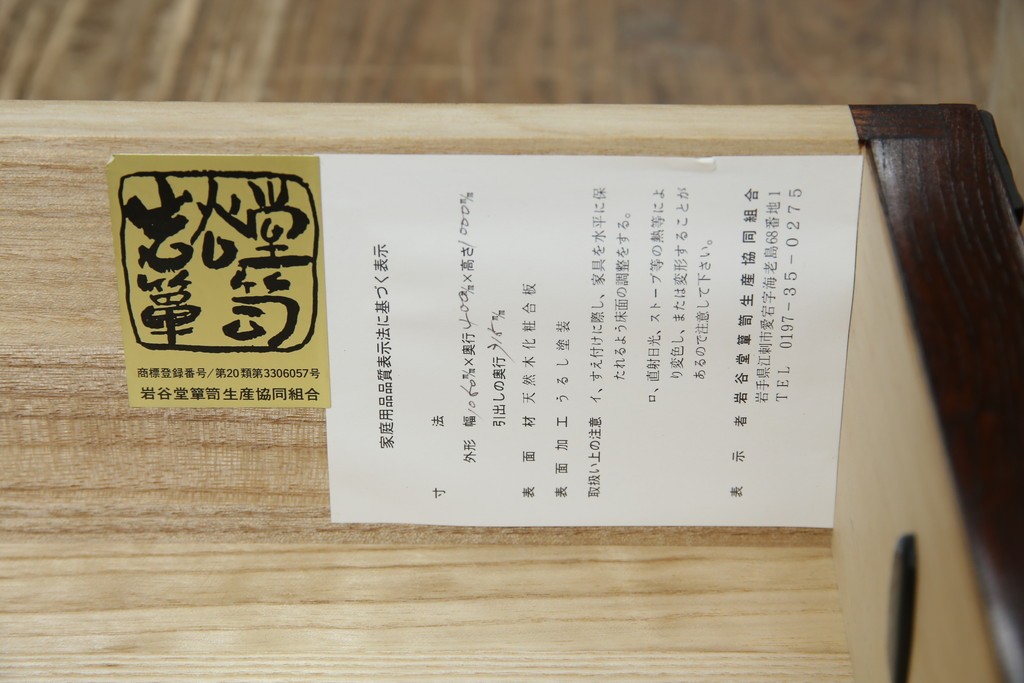 岩谷堂簞笥
商標登録番号/第20類第3306057号
岩谷堂簞笥生産協同組合
家庭用品品質表示法に基づく表示
寸法
外形 幅1060㎜×奥行400㎜×高さ1000㎜
引出しの奥行315㎜
表面材 天然木化粧合板
表面加工 うるし塗装
取扱い上の注意 イ、すえ付けに際し、家具を水平に保
たれるよう床面の調整をする。
ロ、直射日光、ストーブ等の熱等によ
り変色し、または変形することが
あるので注意して下さい。
表示者 岩谷堂簞笥生産協同組合
岩手県江刺市愛宕字海老島68番地1
TEL 0197-35-0275